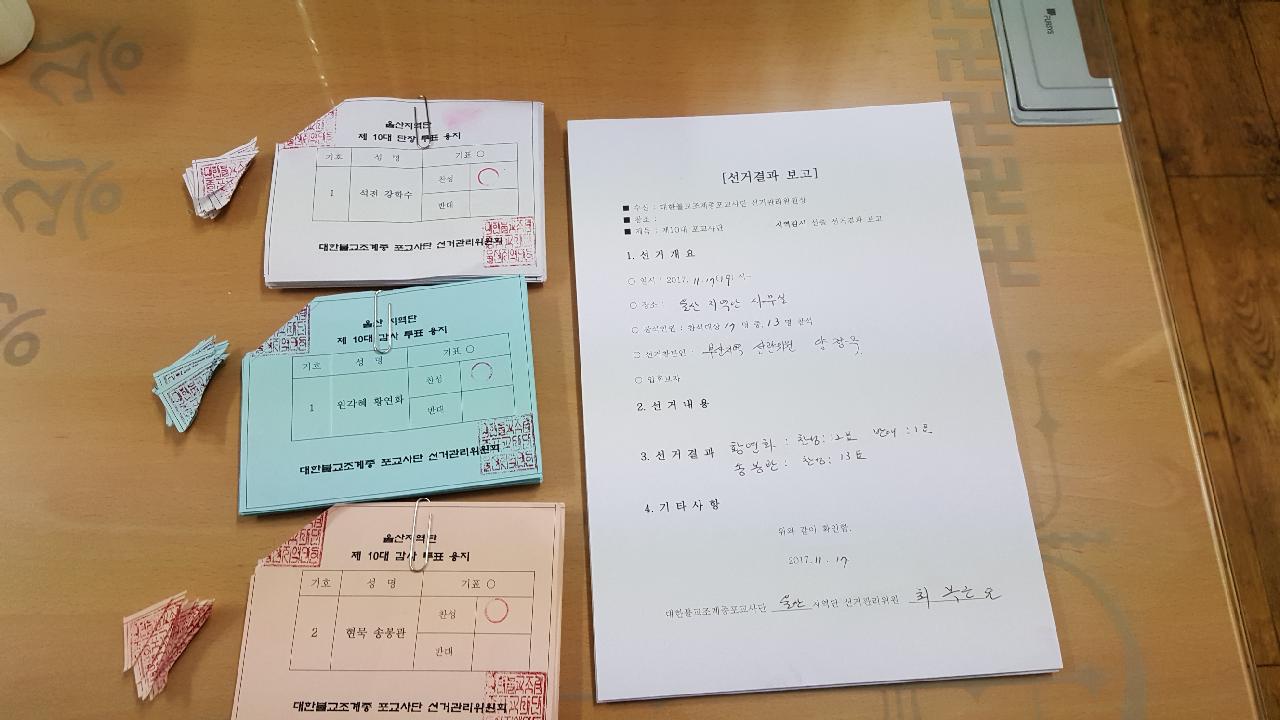 울산지역단
제 10대 단장 투표 용지
기호 성 명 기표 ○
1 석전 강학수 찬성
반대
대한불교조계종 포교사단 선거관리위원회
울산 지역단
제 10대 감사 투표 용지
기호 성 명 기표 ○
1 원각혜 황연화 찬성
반대
대한불교조계종 포교사단 선거관리위원회
울산지역단
제 10대 감사 투표 용지
기호 성 명 기표 ○
2 현묵 송봉관 찬성
반대
대한불교조계종 포교사단 선거관리위원회
[선거결과 보고]
■ 수신 : 대한불교조계종포교사단 선거관리위원장
■ 참조 :
■ 제목 : 제10대 포교사단 선출 선거결과 보고
1. 선 거 개 요
○ 일시 : 2017. 11. 17
○ 장소 : 울산 지역단 사무실
○ 참석인원 : 참석대상 17 명 중, 13 명 참석
○ 선거관리인 : 부산지역 선관위원
○ 입후보자
2. 선 거 내 용
3. 선 거 결 과 황연화 : 찬성: 12표 반대 : 1표
송봉관 : 찬성: 13표
4. 기 타 사 항
위와 같이 확인함.
2017. 11. 17
대한불교조계종포교사단 울산 지역단 선거관리위원